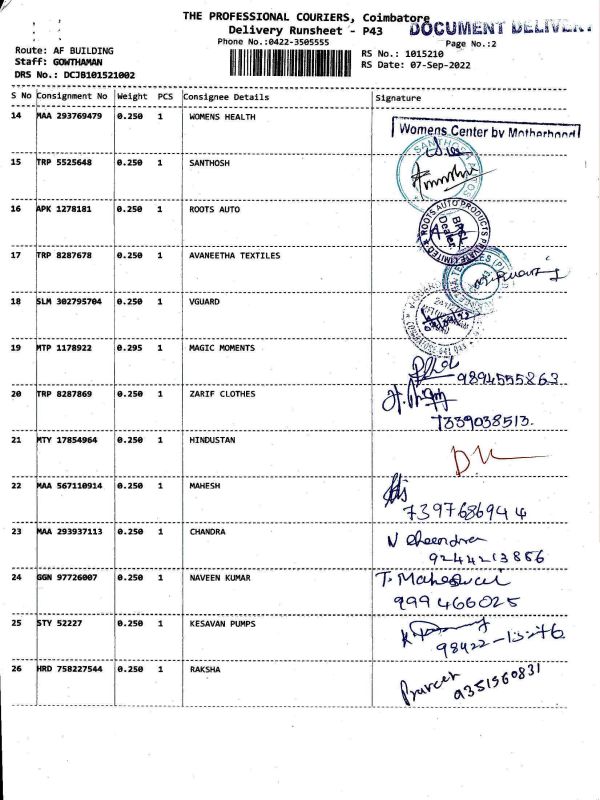 THE PROFESSIONAL COURIERS, Coimbatore
DOCUMENT DELIVERY
Delivery Runsheet - P43
Phone No.:0422-3505555
Page No.:2
Route: AF BUILDING
Staff: GOWTHAMAN
DRS No.: DCJB101521002
RS No.: 1015210
RS Date: 07-Sep-2022
S No Consignment No Weight PCS Consignee Details Signature
14 MAA 293769479 0.250 1 WOMENS HEALTH
Womens Center by Motherhood
15 TRP 5525648 0.250 1 SANTHOSH
16 APK 1278181 0.250 1 ROOTS AUTO
ROOTS AUTO PRODUCTS PRIVATE LIMITED
17 TRP 8287678 0.250 1 AVANEETHA TEXTILES
18 SLM 302795704 0.250 1 VGUARD
19 MTP 1178922 0.295 1 MAGIC MOMENTS
9894555863
20 TRP 8287869 0.250 1 ZARIF CLOTHES
7339038513.
21 MTY 17854964 0.250 1 HINDUSTAN
22 MAA 567110914 0.250 1 MAHESH
7397686944
23 MAA 293937113 0.250 1 CHANDRA
9244213866
24 GGN 97726007 0.250 1 NAVEEN KUMAR
T. Maheswari
999466025
25 STY 52227 0.250 1 KESAVAN PUMPS
98422-13-46
26 HRD 758227544 0.250 1 RAKSHA
Praveen
9351560831